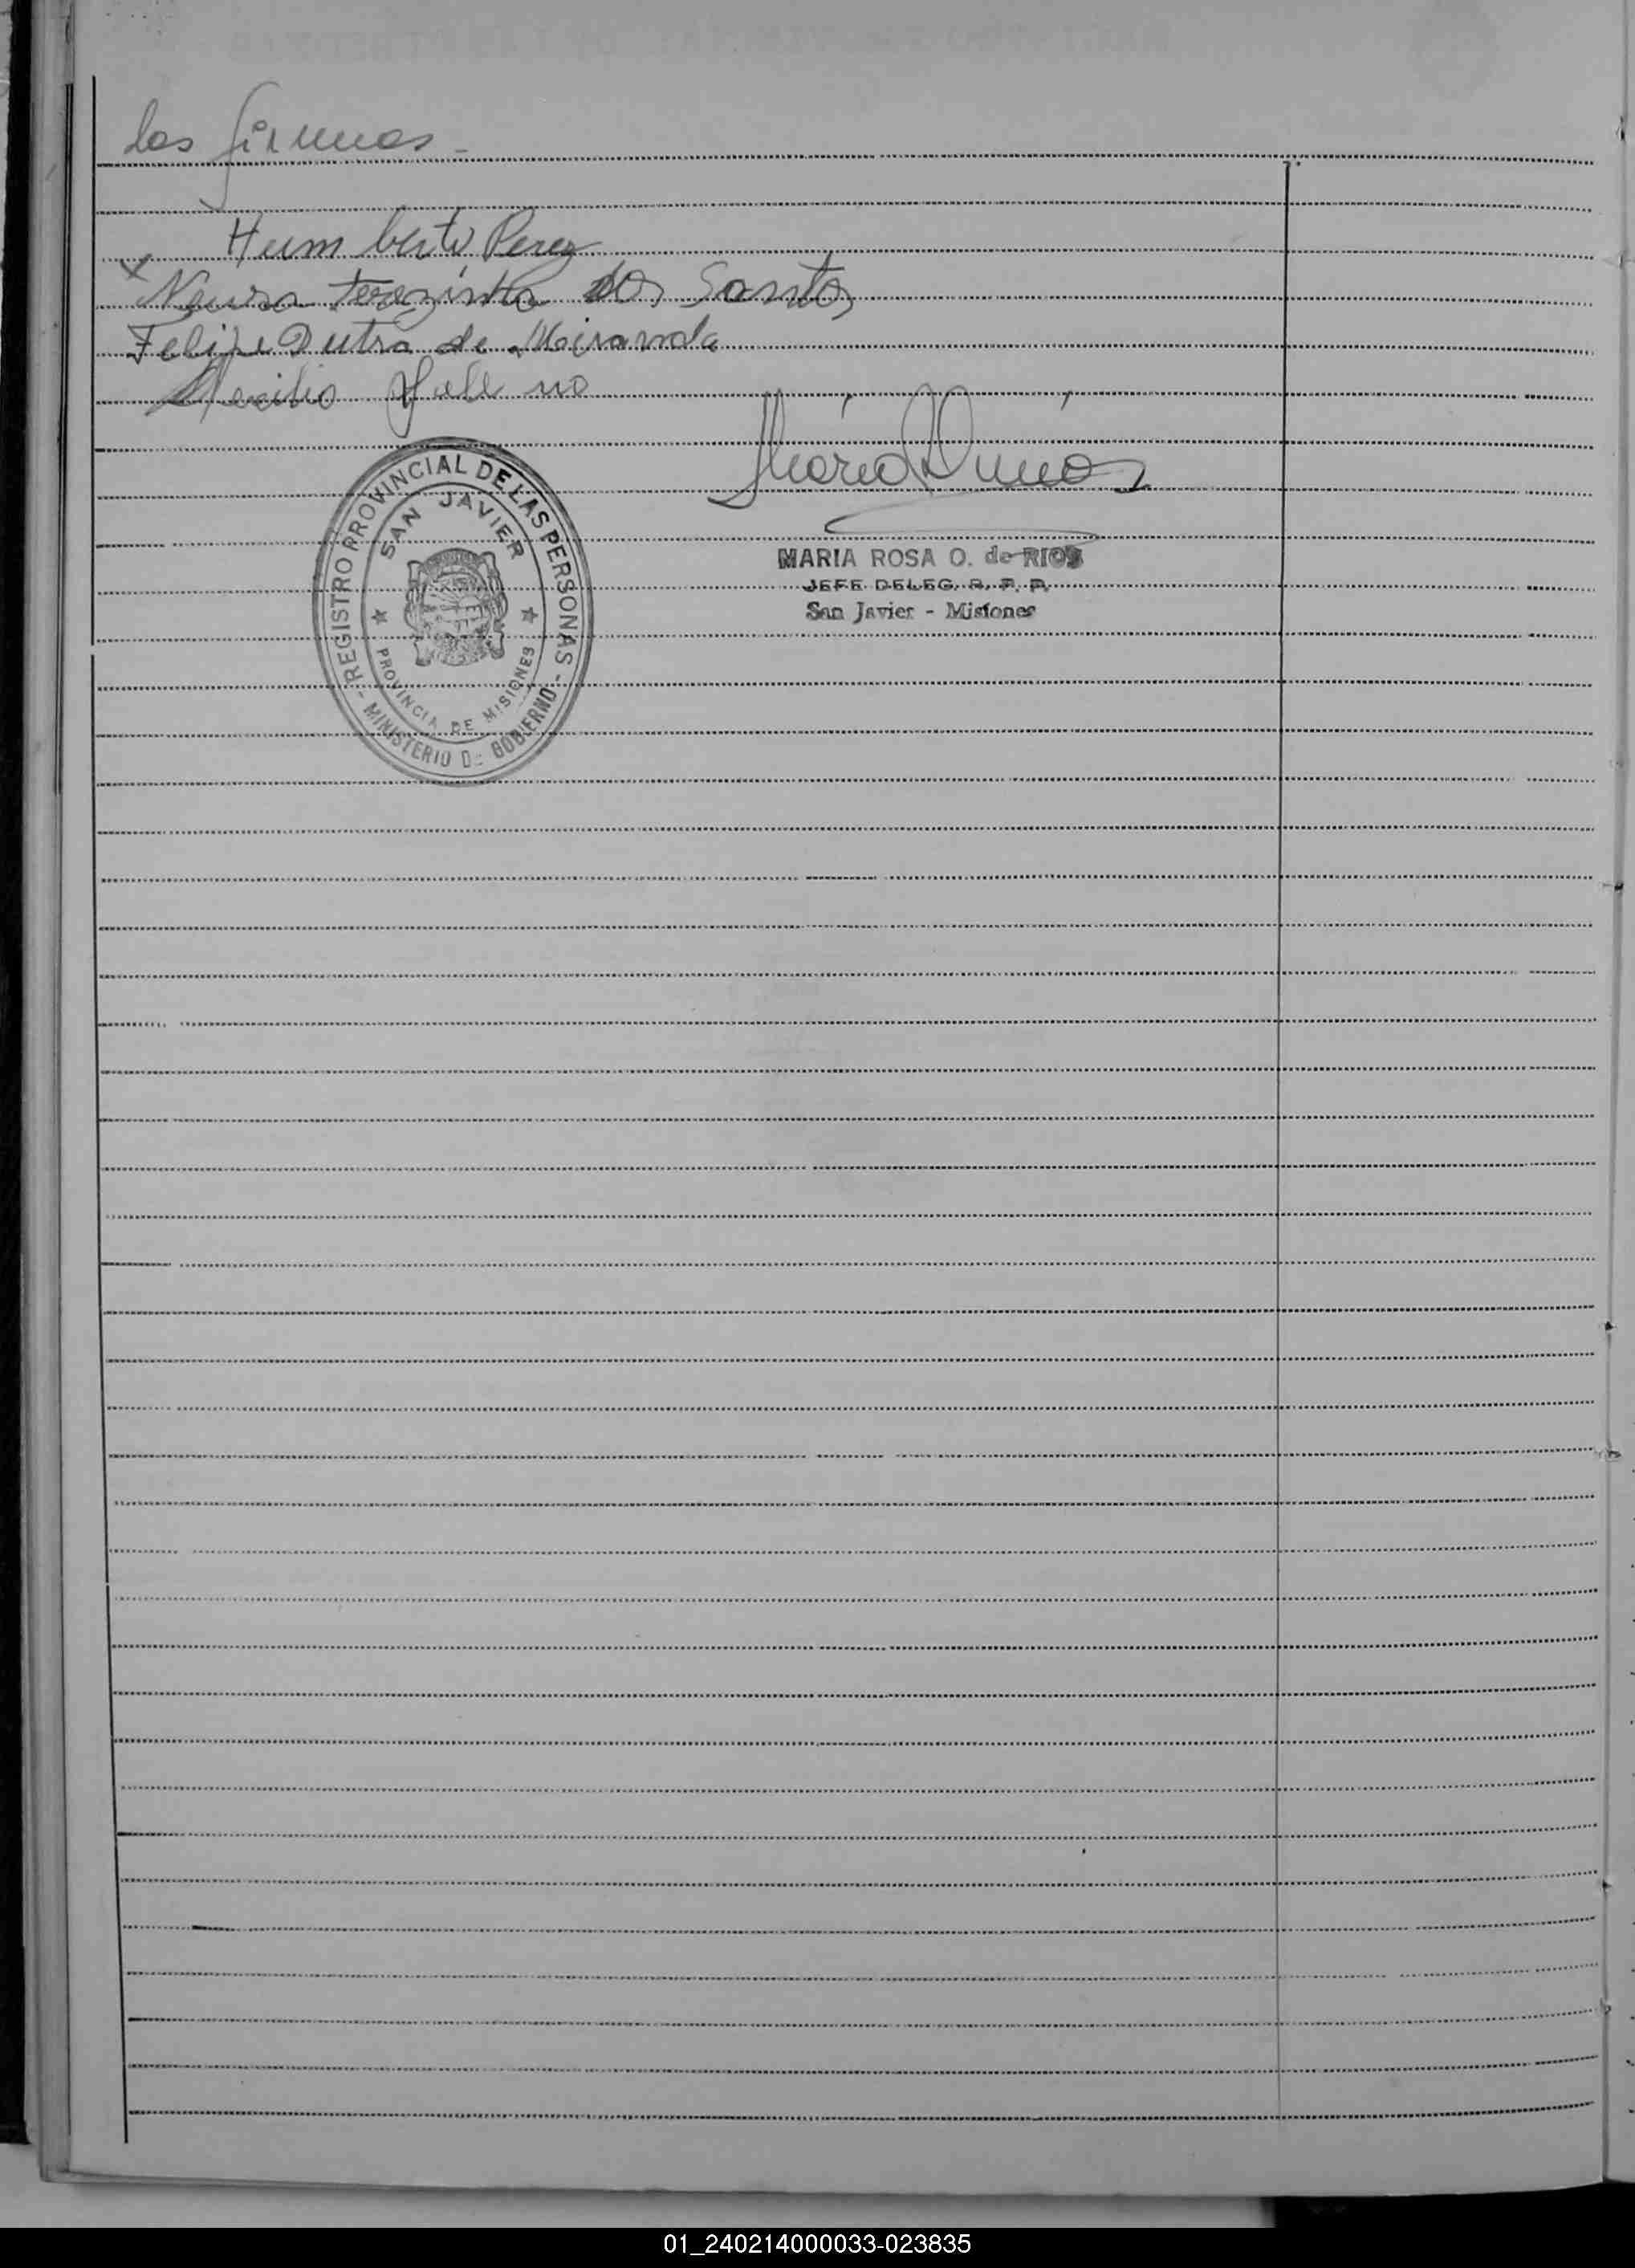 las firmas -
Humberto Perez
x
Neusa Terezinha dos Santos
Felipe Dutra de Miranda
REGISTRO PROVINCIAL DE LAS PERSONAS
SAN JAVIER
PROVINCIA DE MISIONES
- MINISTERIO DE GOBIERNO -
MARIA ROSA O. de RIOS
JEFE DELEG. R. P. P.
San Javier - Misiones
01_240214000033-023835